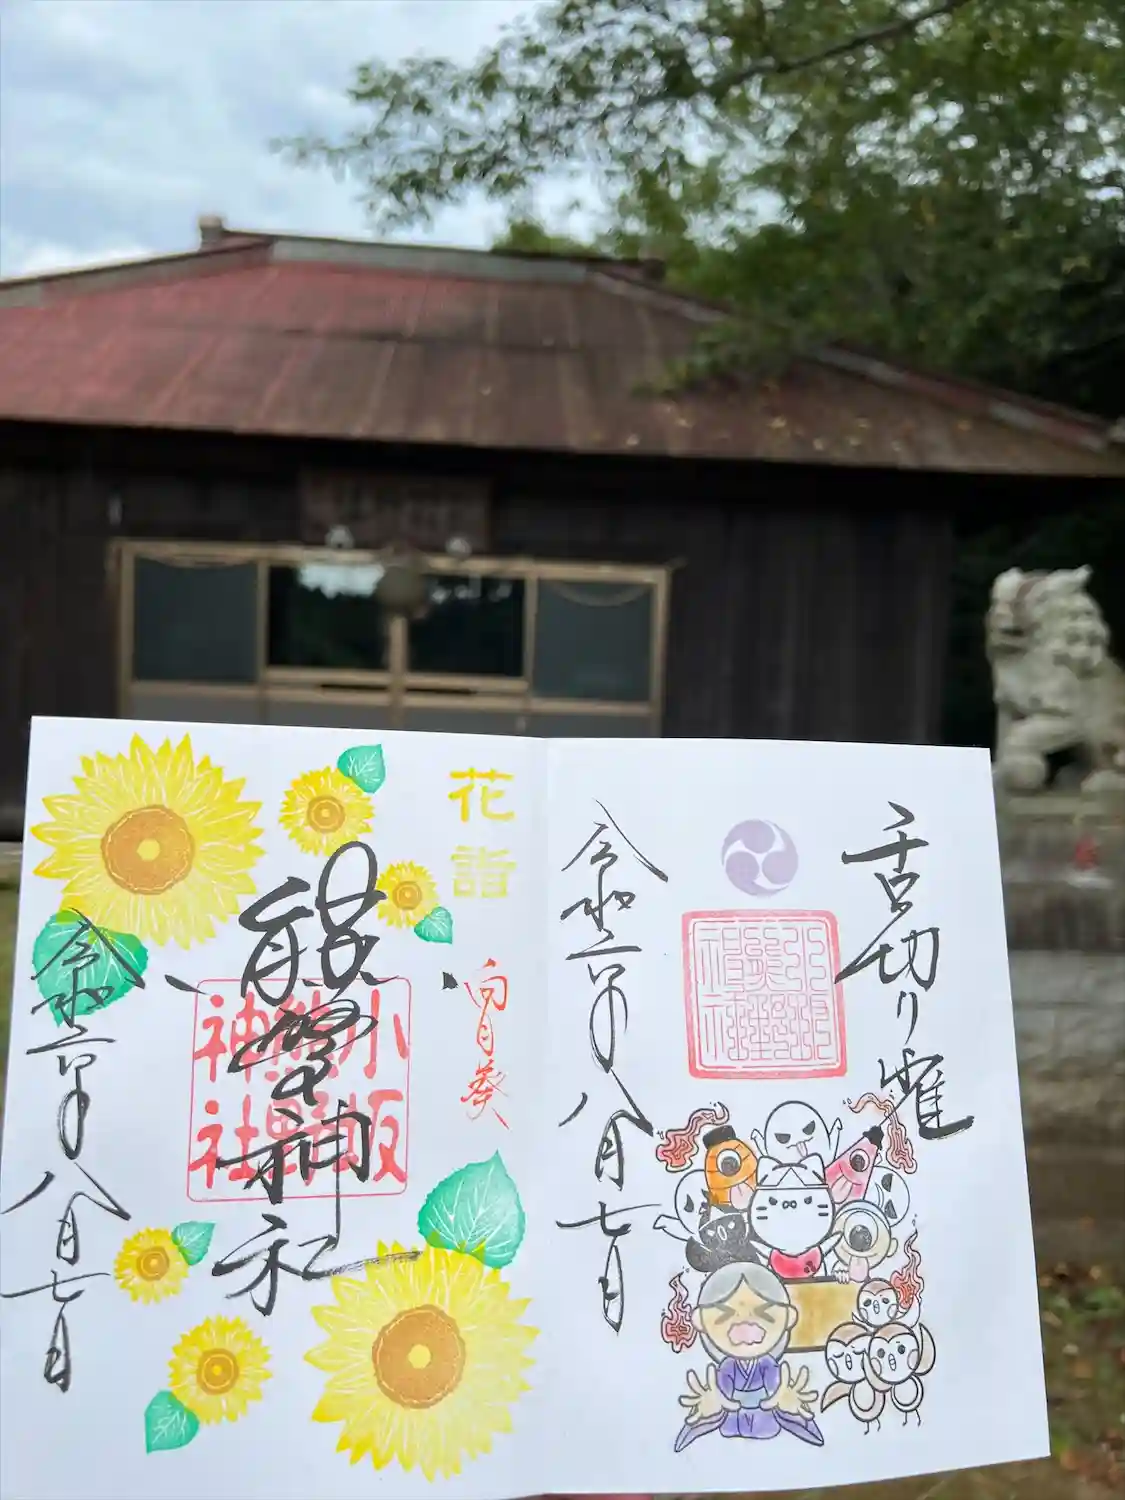 舌切り雀
令和六年八月七日
花詣
向日葵
熊野神社
小坂
熊野
神社
令和六年八月七日